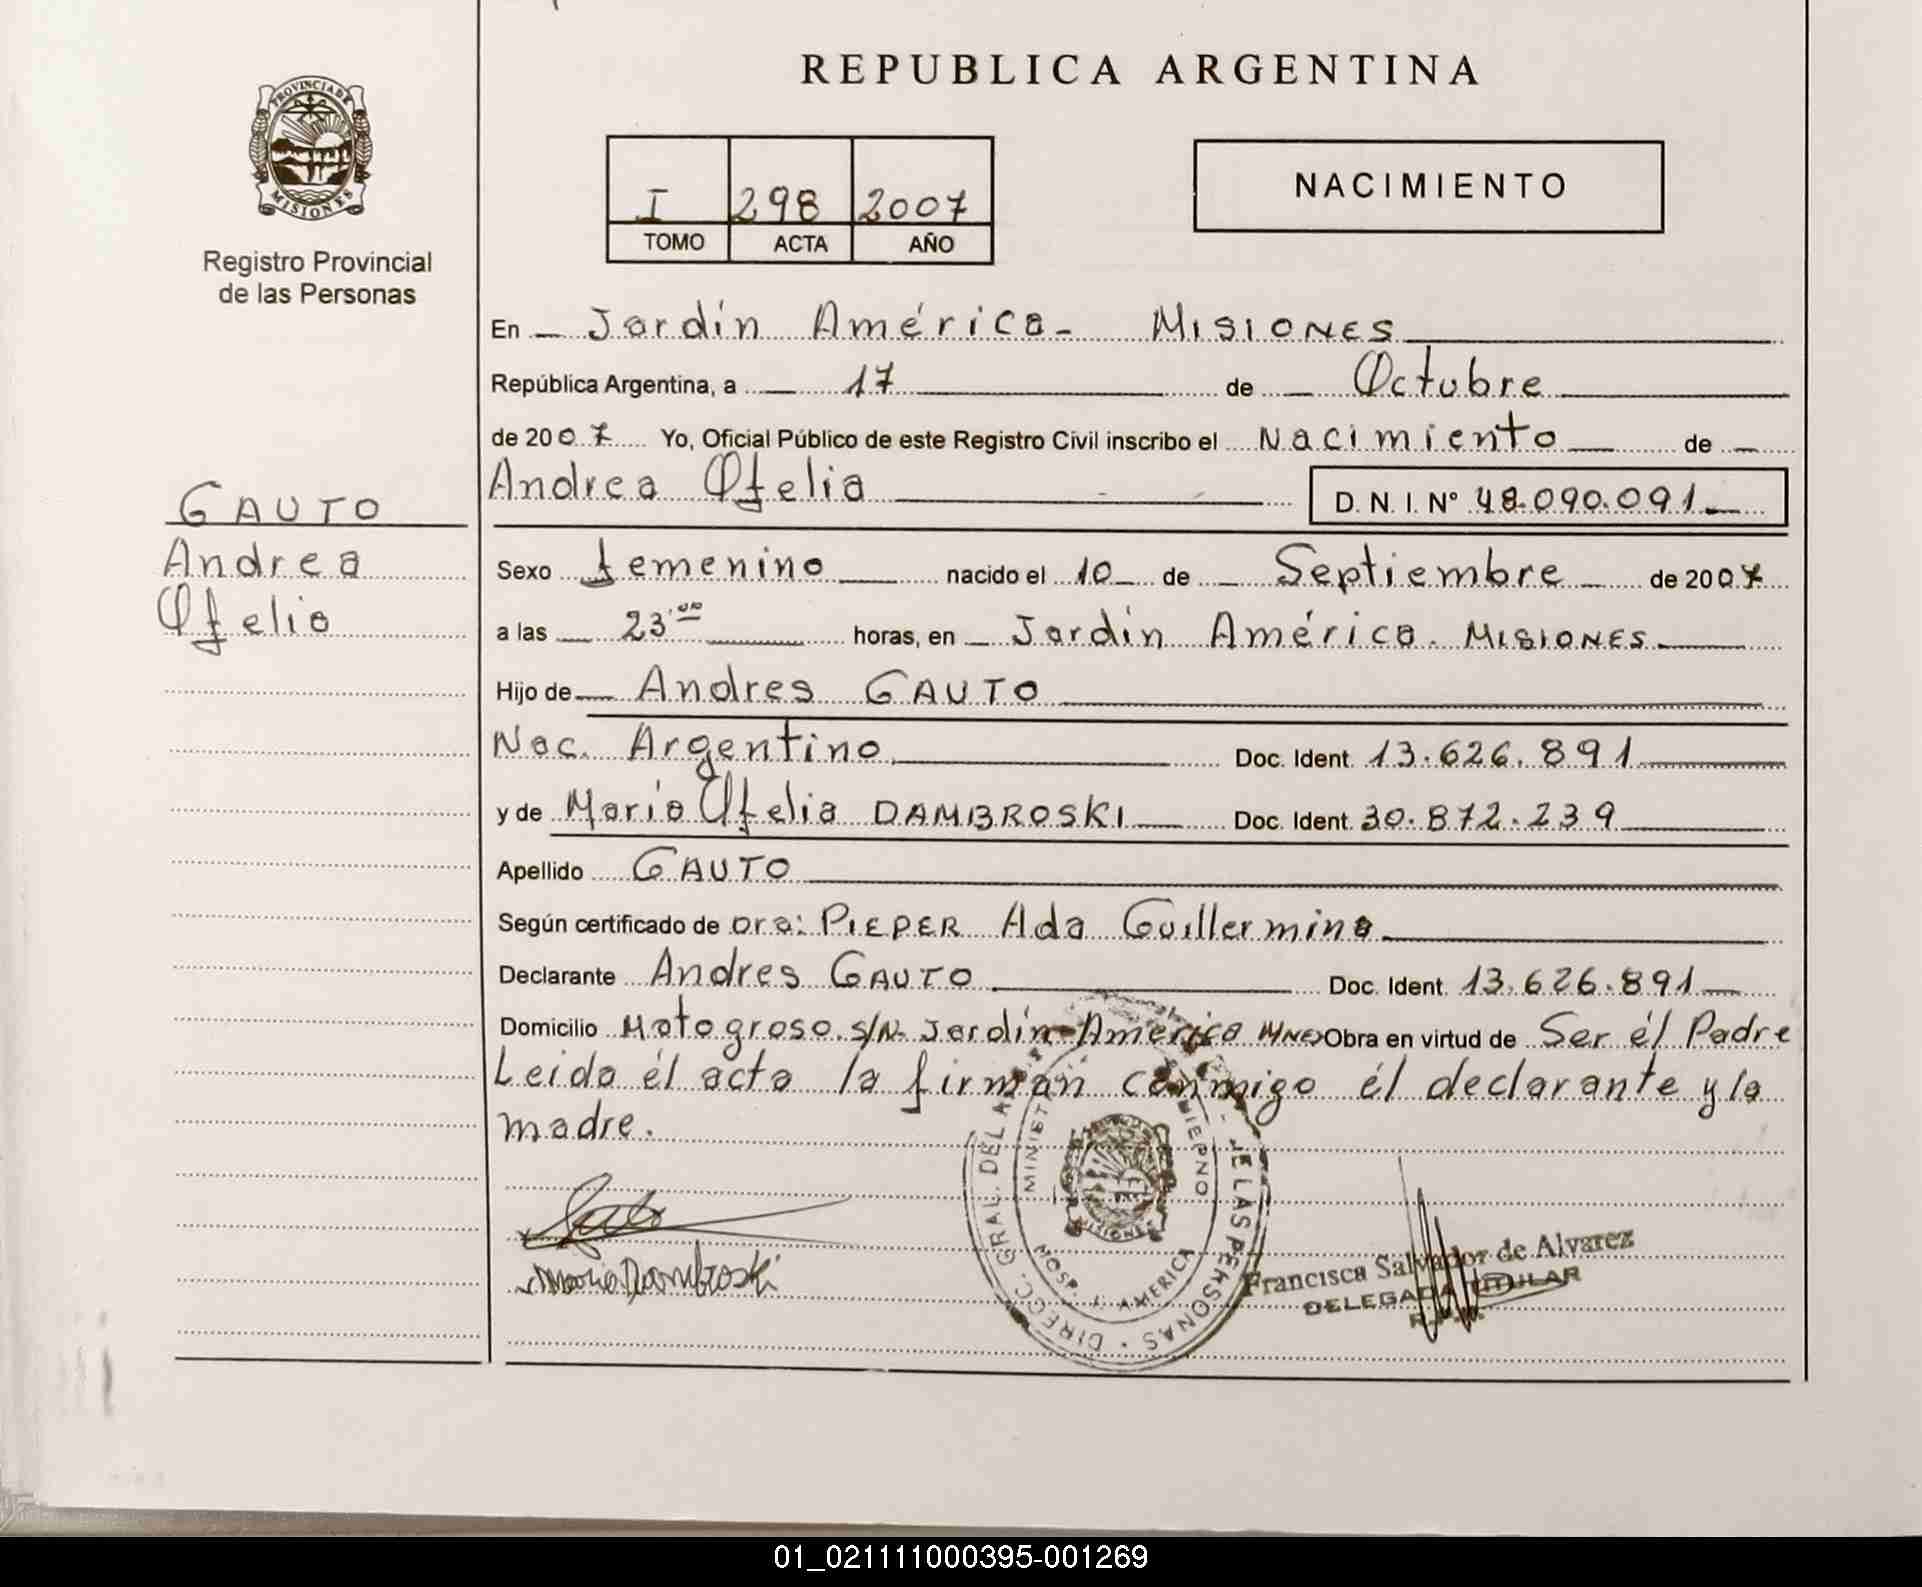 REPUBLICA ARGENTINA
PROVINCIA DE
MISIONES
Registro Provincial
de las Personas
I 298 2007
TOMO ACTA AÑO
NACIMIENTO
GAUTO
Andrea
Ofelia
En Jardín América - MISIONES
República Argentina, a 17 de Octubre
de 2007 Yo, Oficial Público de este Registro Civil inscribo el Nacimiento de
Andrea Ofelia D. N. I. Nº 48.090.091
Sexo femenino nacido el 10 de Septiembre de 2007
a las 23:00 horas, en Jardín América. MISIONES
Hijo de Andres GAUTO
Nac. Argentino Doc. Ident. 13.626.891
y de María Ofelia DAMBROSKI Doc. Ident. 30.872.239
Apellido GAUTO
Según certificado de Dra: PIEPER Ada Guillermina
Declarante Andres GAUTO Doc. Ident. 13.626.891
Domicilio Matogroso. s/N- Jardín América MNES Obra en virtud de Ser él Padre
Leida él acta la firman conmigo él declarante y la
madre.
Maria Dambroski
DIRECC. GRAL. DEL DE LAS PERSONAS
MOSP. J. AMERICA
MISIONES
Francisca Salvador de Alvarez
DELEGADA TITULAR
01_021111000395-001269